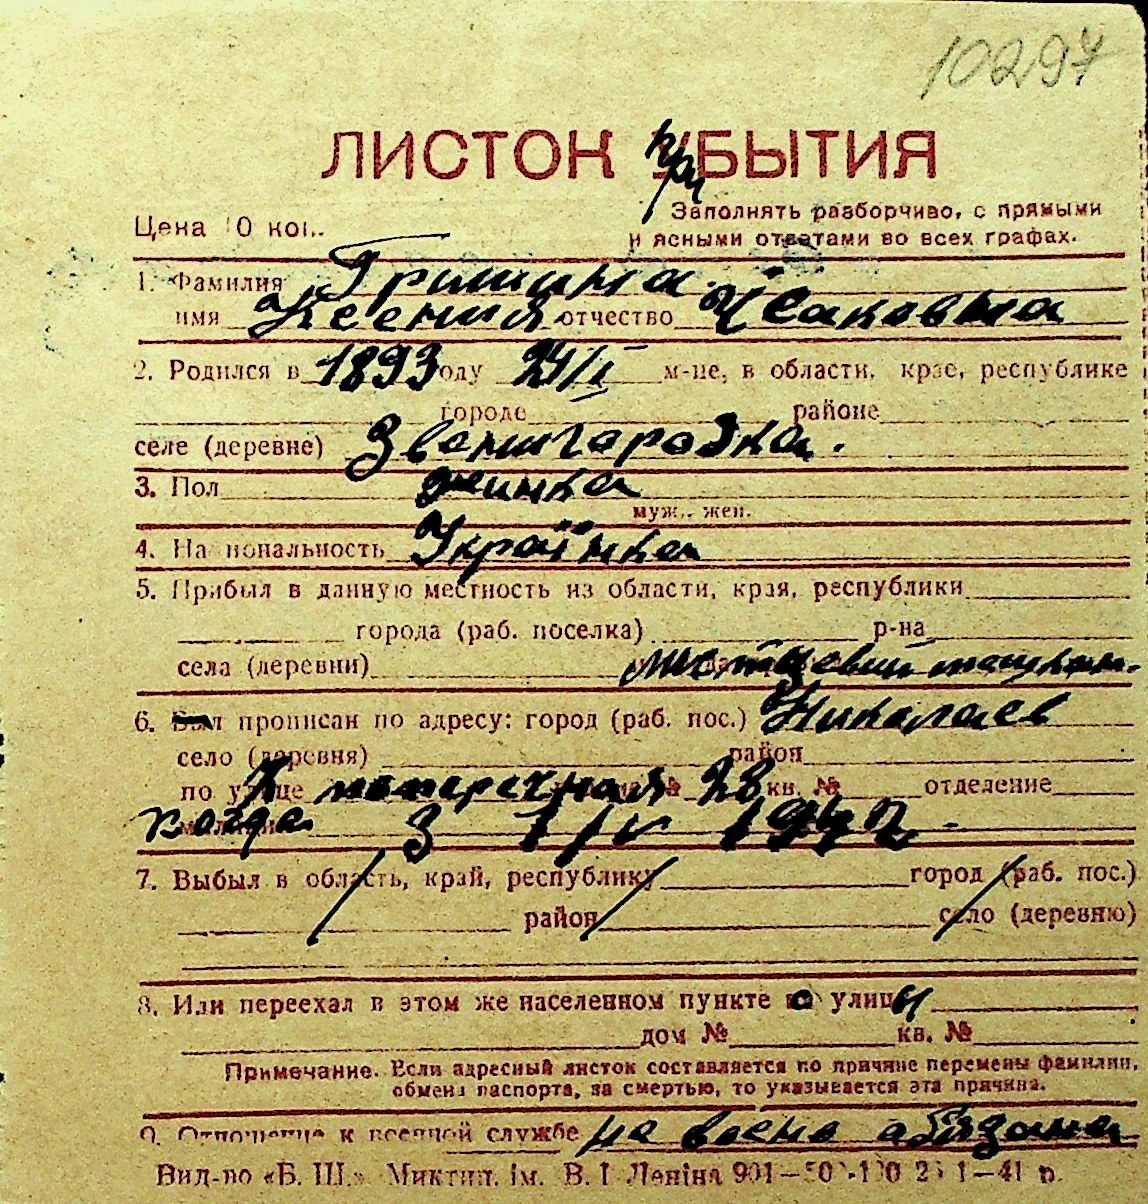 10297
ЛИСТОК прБЫТИЯ
Цена 10 коп.
Заполнять разборчиво, с прямыми
и ясными ответами во всех графах.
1. Фамилия Гришина
имя Ксения отчество Исаковна
2. Родился в 1893 году 24/I м-це, в области, крае, республике
городе районе
селе (деревне) Звенигородка.
3. Пол жинка
муж., жен.
4. Национальность Українка
5. Прибыл в данную местность из области, края, республики
города (раб. поселка) р-на
села (деревни) местцевий
6. прописан по адресу: город (раб. пос.) Николаев
село (деревня) район
по улице поперечная № 28 кв. № отделение
когда З 1/IV 1942.
7. Выбыл в область, край, республику город (раб. пос.)
район село (деревню)
8. Или переехал в этом же населенном пункте с улицы
дом № кв. №
Примечание. Если адресный листок составляется по причине перемены фамилии,
обмена паспорта, за смертью, то указывается эта причина.
9. Отношение к военной службе не воено
Вид-во «Б. Ш.» Миктип. ім. В. І Леніна 901—50